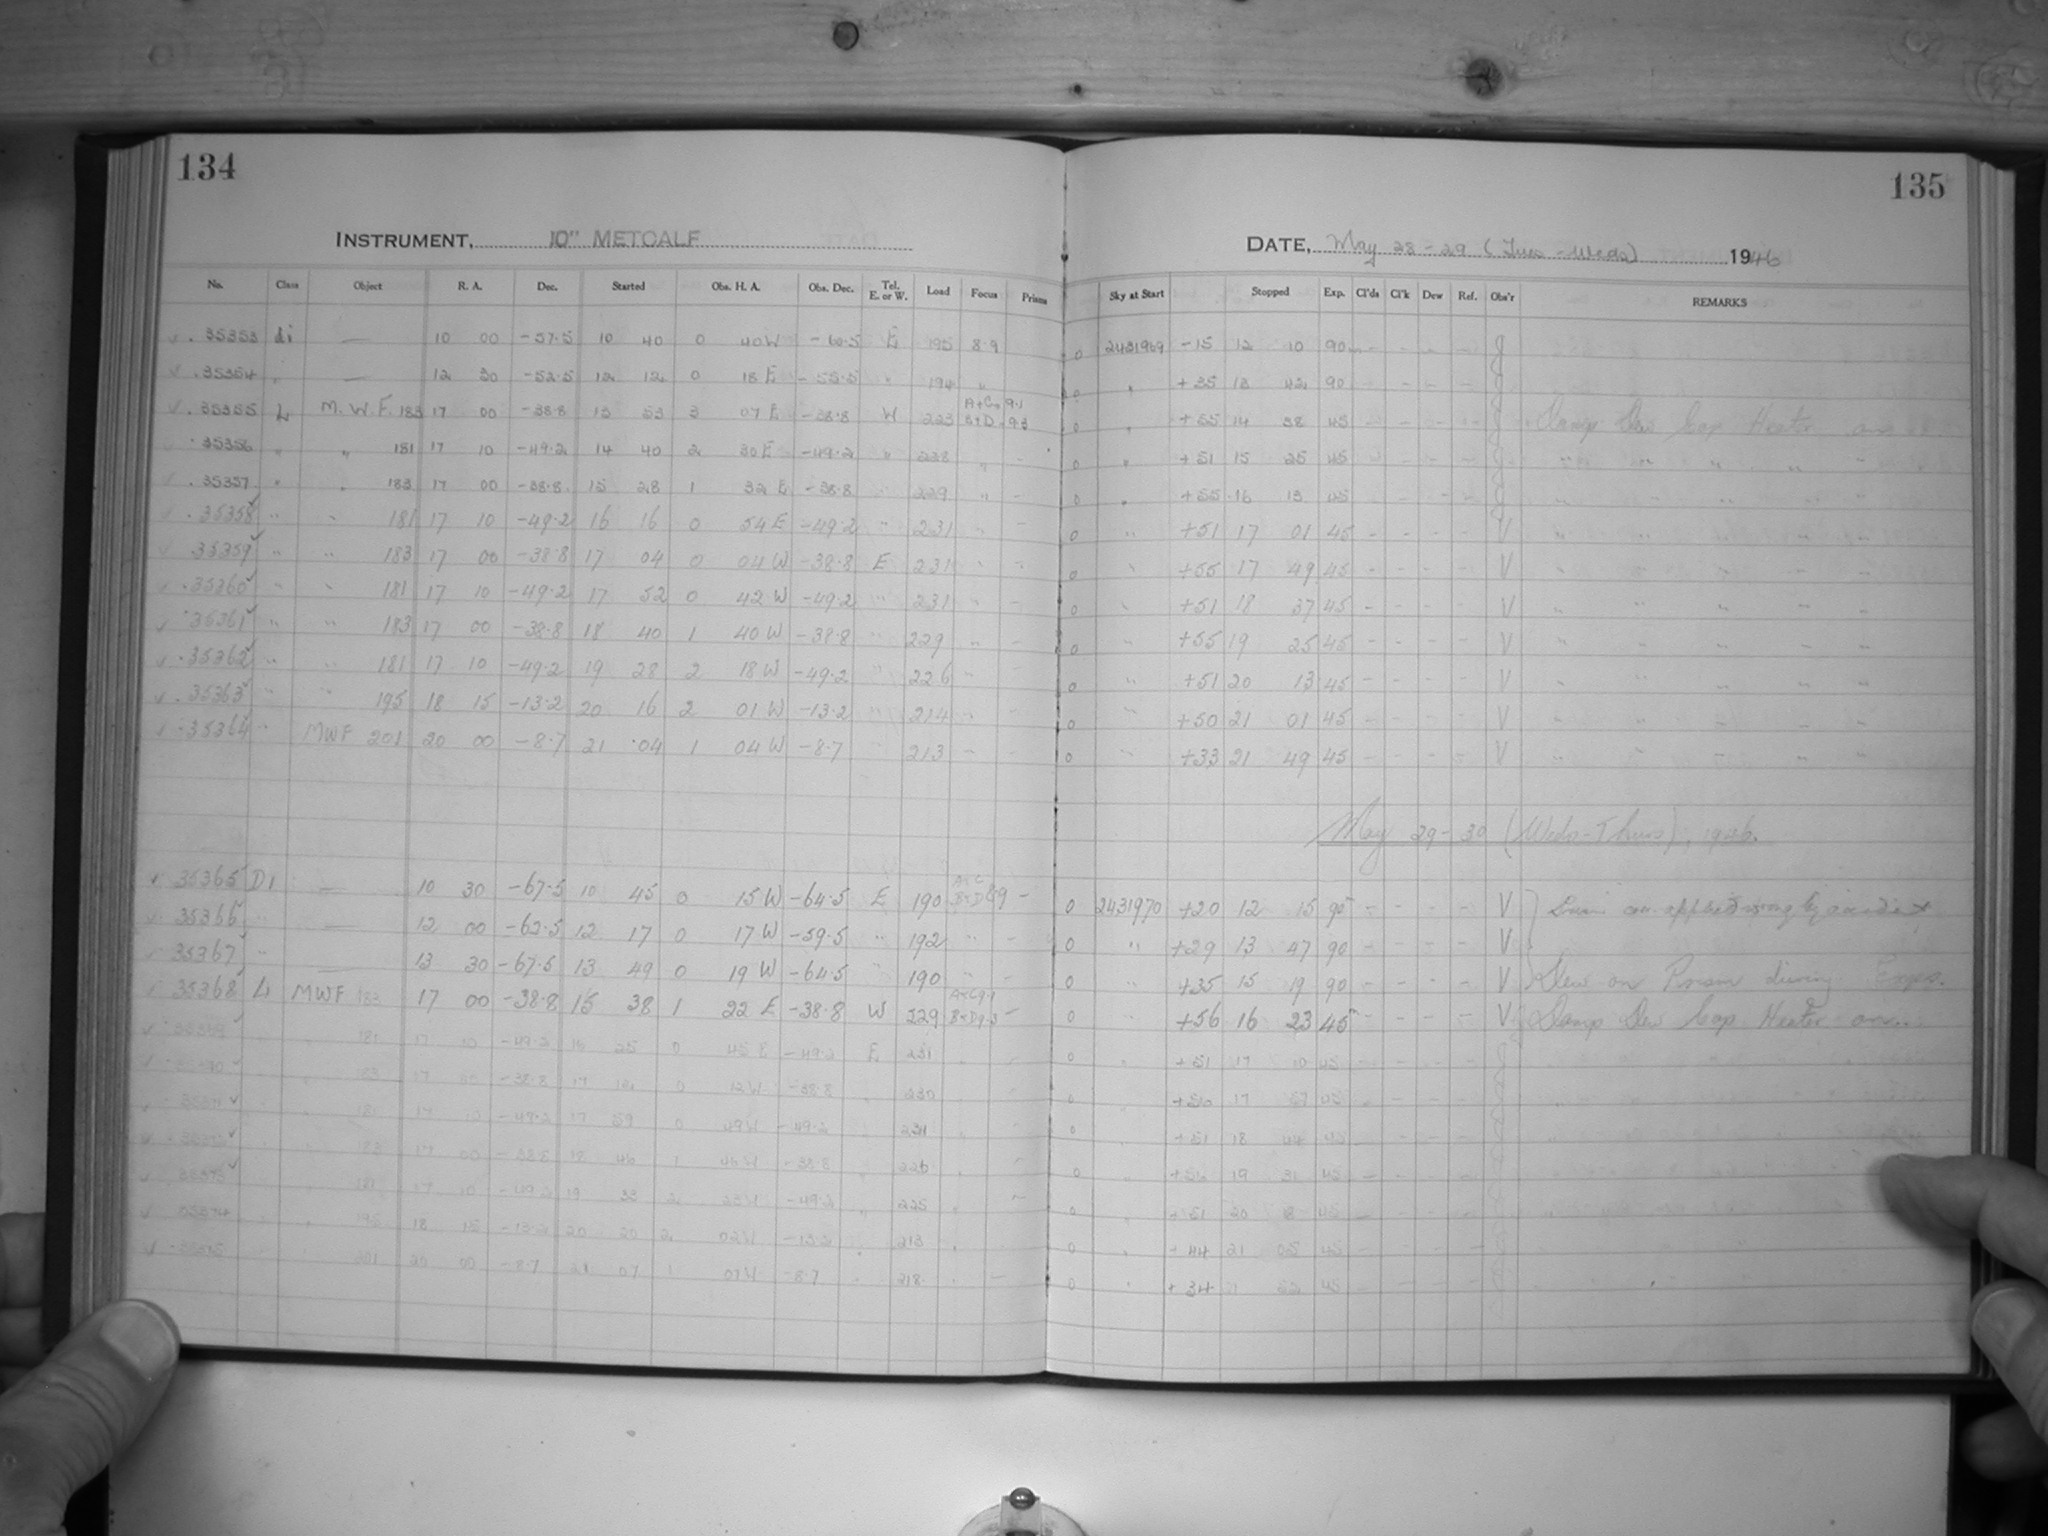 134
135
INSTRUMENT, 10" METCALF
DATE, May 28-29 (Tues-Weds) 1946
No. Class Object R. A. Dec. Started Obs. H. A. Obs. Dec. Tel. E. or W. Load Focus Prisms Sky at Start Stopped Exp. Cl'ds Cl'k Dew Ref. Obs'r REMARKS
35353 di — 10 00 -57.5 10 40 0 40 W -60.5 E 195 8.9 0 2431969 -15 12 10 90 - - - - J
35354 " — 12 30 -52.5 12 12 0 18 E -55.5 " 194 " 0 " +35 13 42 90 - - - - J
35355 L M.W.F. 183 17 00 -38.8 13 53 3 07 E -38.8 W 223 A+C 9.1 B+D 9.3 0 " +55 14 38 45 - - - - J Lamp Dew Cap Heater on
35356 " " 181 17 10 -49.2 14 40 2 30 E -49.2 " 228 " - 0 " +51 15 25 45 - - - - J " " " " "
35357 " " 183 17 00 -38.8 15 28 1 32 E -38.8 " 229 " - 0 " +55 16 13 45 - - - - J " " " " "
35358 " " 181 17 10 -49.2 16 16 0 54 E -49.2 " 231 " - 0 " +51 17 01 45 - - - - V " " " " "
35359 " " 183 17 00 -38.8 17 04 0 04 W -38.8 E 231 " - 0 " +55 17 49 45 - - - - V " " " " "
35360 " " 181 17 10 -49.2 17 52 0 42 W -49.2 " 231 " - 0 " +51 18 37 45 - - - - V " " " " "
35361 " " 183 17 00 -38.8 18 40 1 40 W -38.8 " 229 " - 0 " +55 19 25 45 - - - - V " " " " "
35362 " " 181 17 10 -49.2 19 28 2 18 W -49.2 " 226 " - 0 " +51 20 13 45 - - - - V " " " " "
35363 " " 195 18 15 -13.2 20 16 2 01 W -13.2 " 214 " - 0 " +50 21 01 45 - - - - V " " " " "
35364 " MWF 201 20 00 -8.7 21 04 1 04 W -8.7 " 213 " - 0 " +33 21 49 45 - - - - V " " " " "
May 29-30 (Weds-Thurs), 1946.
35365 D1 — 10 30 -67.5 10 45 0 15 W -64.5 E 190 A+C B+D 8.9 - 0 2431970 +20 12 15 90 - - - - V applied wrong by accident
35366 " — 12 00 -62.5 12 17 0 17 W -59.5 " 192 " - 0 " +29 13 47 90 - - - - V
35367 " — 13 30 -67.5 13 49 0 19 W -64.5 " 190 " - 0 " +35 15 19 90 - - - - V Dew on Prism during Expos.
35368 L MWF 183 17 00 -38.8 15 38 1 22 E -38.8 W 229 A+C 9.1 B+D 9.3 - 0 " +56 16 23 45 - - - - V Lamp Dew Cap Heater on
181 17 10 -49.2 16 25 0 45 E -49.2 E 231 0 " +51 17 10 45 - - - - J
183 17 00 -38.8 17 12 0 12 W -38.8 " 230 0 " 17 57 45 - - - - J
181 17 10 -49.2 17 59 0 49 W -49.2 " 231 0 " +51 18 44 45 - - - - J
183 17 00 -38.8 18 46 1 46 W -38.8 " 226 0 " 19 31 45 - - - - J
35373 181 17 10 -49.2 19 33 2 23 W -49.2 " 225 0 " +51 20 18 45 - - - - J
35374 195 18 15 -13.2 20 20 2 02 W -13.2 " 213 0 " +44 21 05 45 - - - - J
35375 201 20 00 -8.7 21 07 1 07 W -8.7 " 218 0 " +34 21 52 45 - - - - J